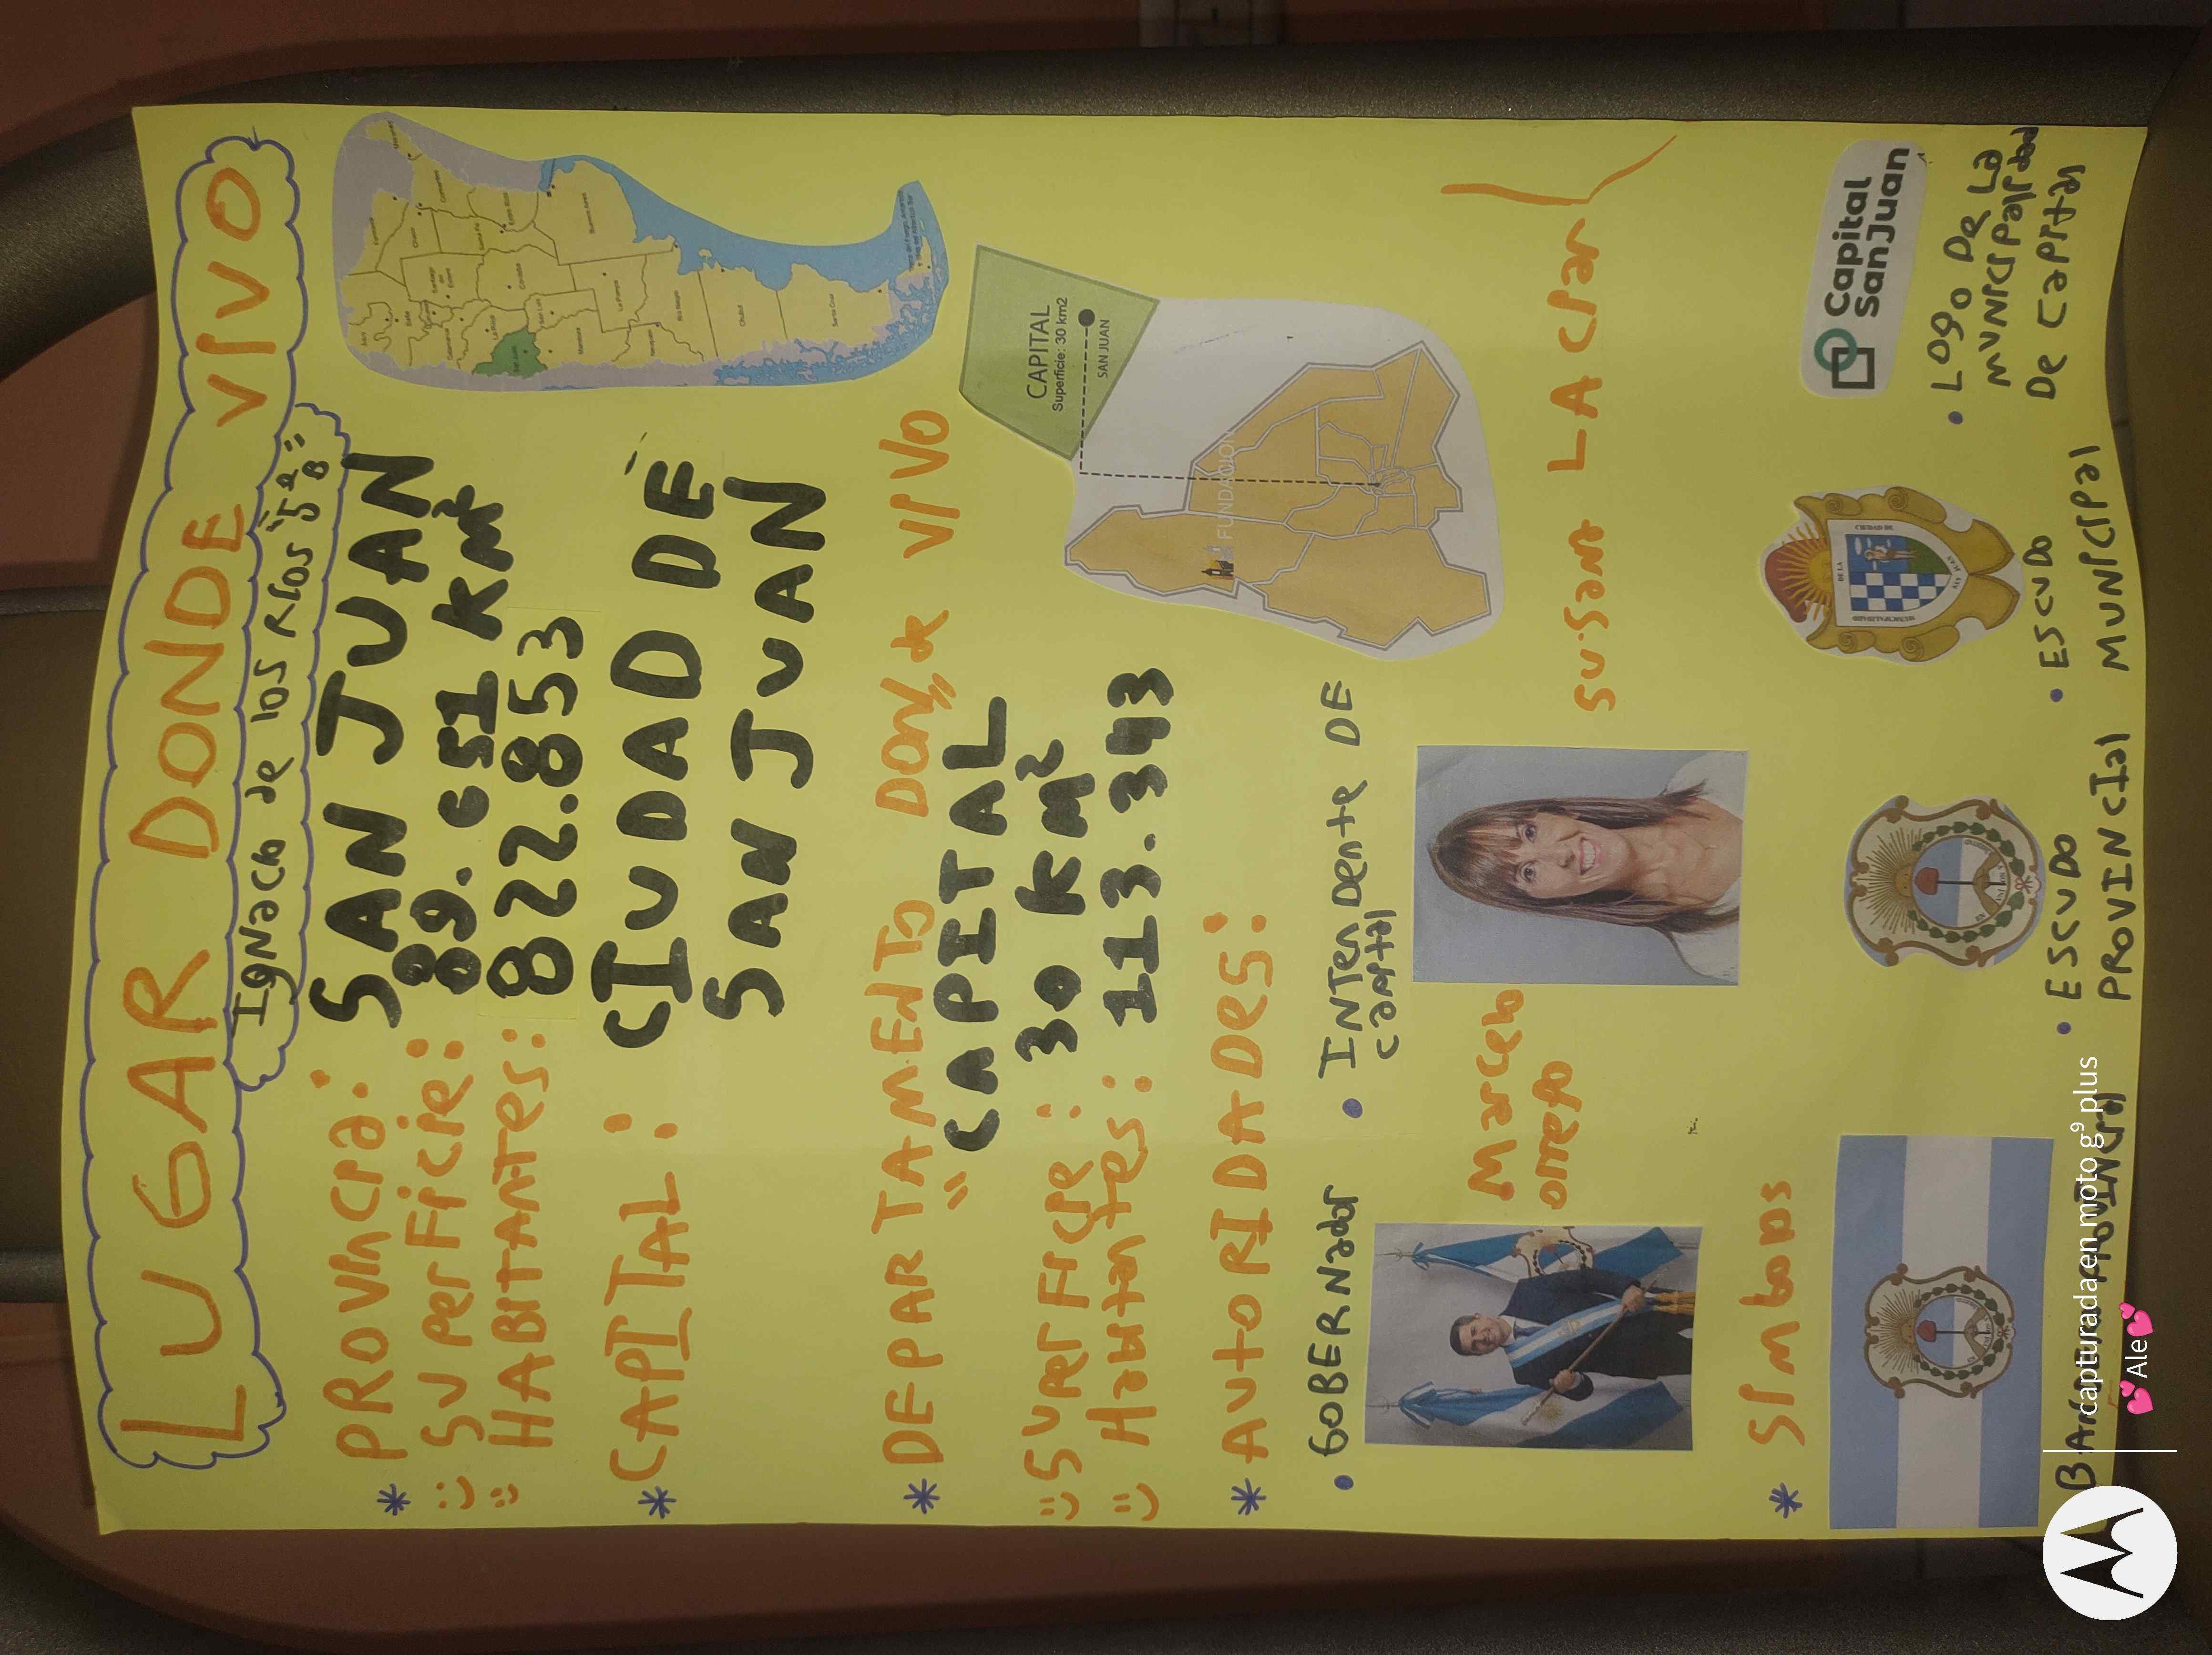 LUGAR DONDE VIVO
IGNacio de los Ríos "5°B"
* PROVINCIA: SAN JUAN
SUperFicie: 89.651 km²
HABITANTES: 822.853
* CAPITAL: CIUDAD DE
SAN JUAN
* DEPARTAMENTO DONDE VIVO
" CAPITAL
SuperFicie: 30 km²
Habitantes: 113.343
CAPITAL
Superficie: 30 km2
SAN JUAN
FUNDACION
* AUtoRIDADes:
• GOBERNador
• INTENDente DE
capital
Marcelo
orrego
Susana LAciar
* Símbolos
Capital
SanJuan
MUNICIPALIDAD
DE LA
CIUDAD DE
SAN JUAN
• ESCUDO
PROVINCIal
• ESCUDO
MUNICIPal
• Logo De La
municipalidad
De Capital
capturada en moto g⁹ plus
💕Ale💕